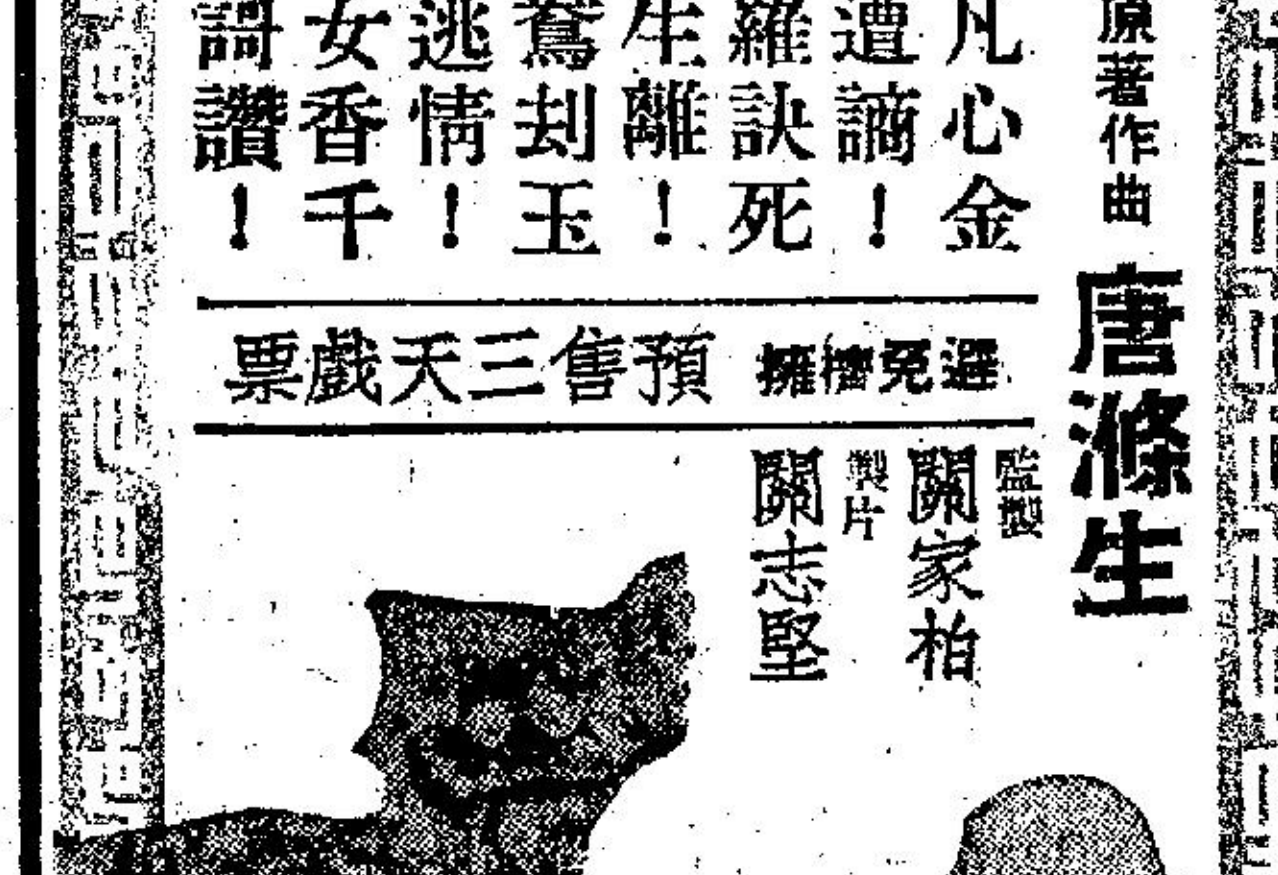 原著作曲 唐滌生
凡心金
遭謫！
羅訣死
生離！
鴛刦玉
逃情！
女香千
謌讚！
避免擠擁 預售三天戲票
監製 關家柏
製片 關志堅